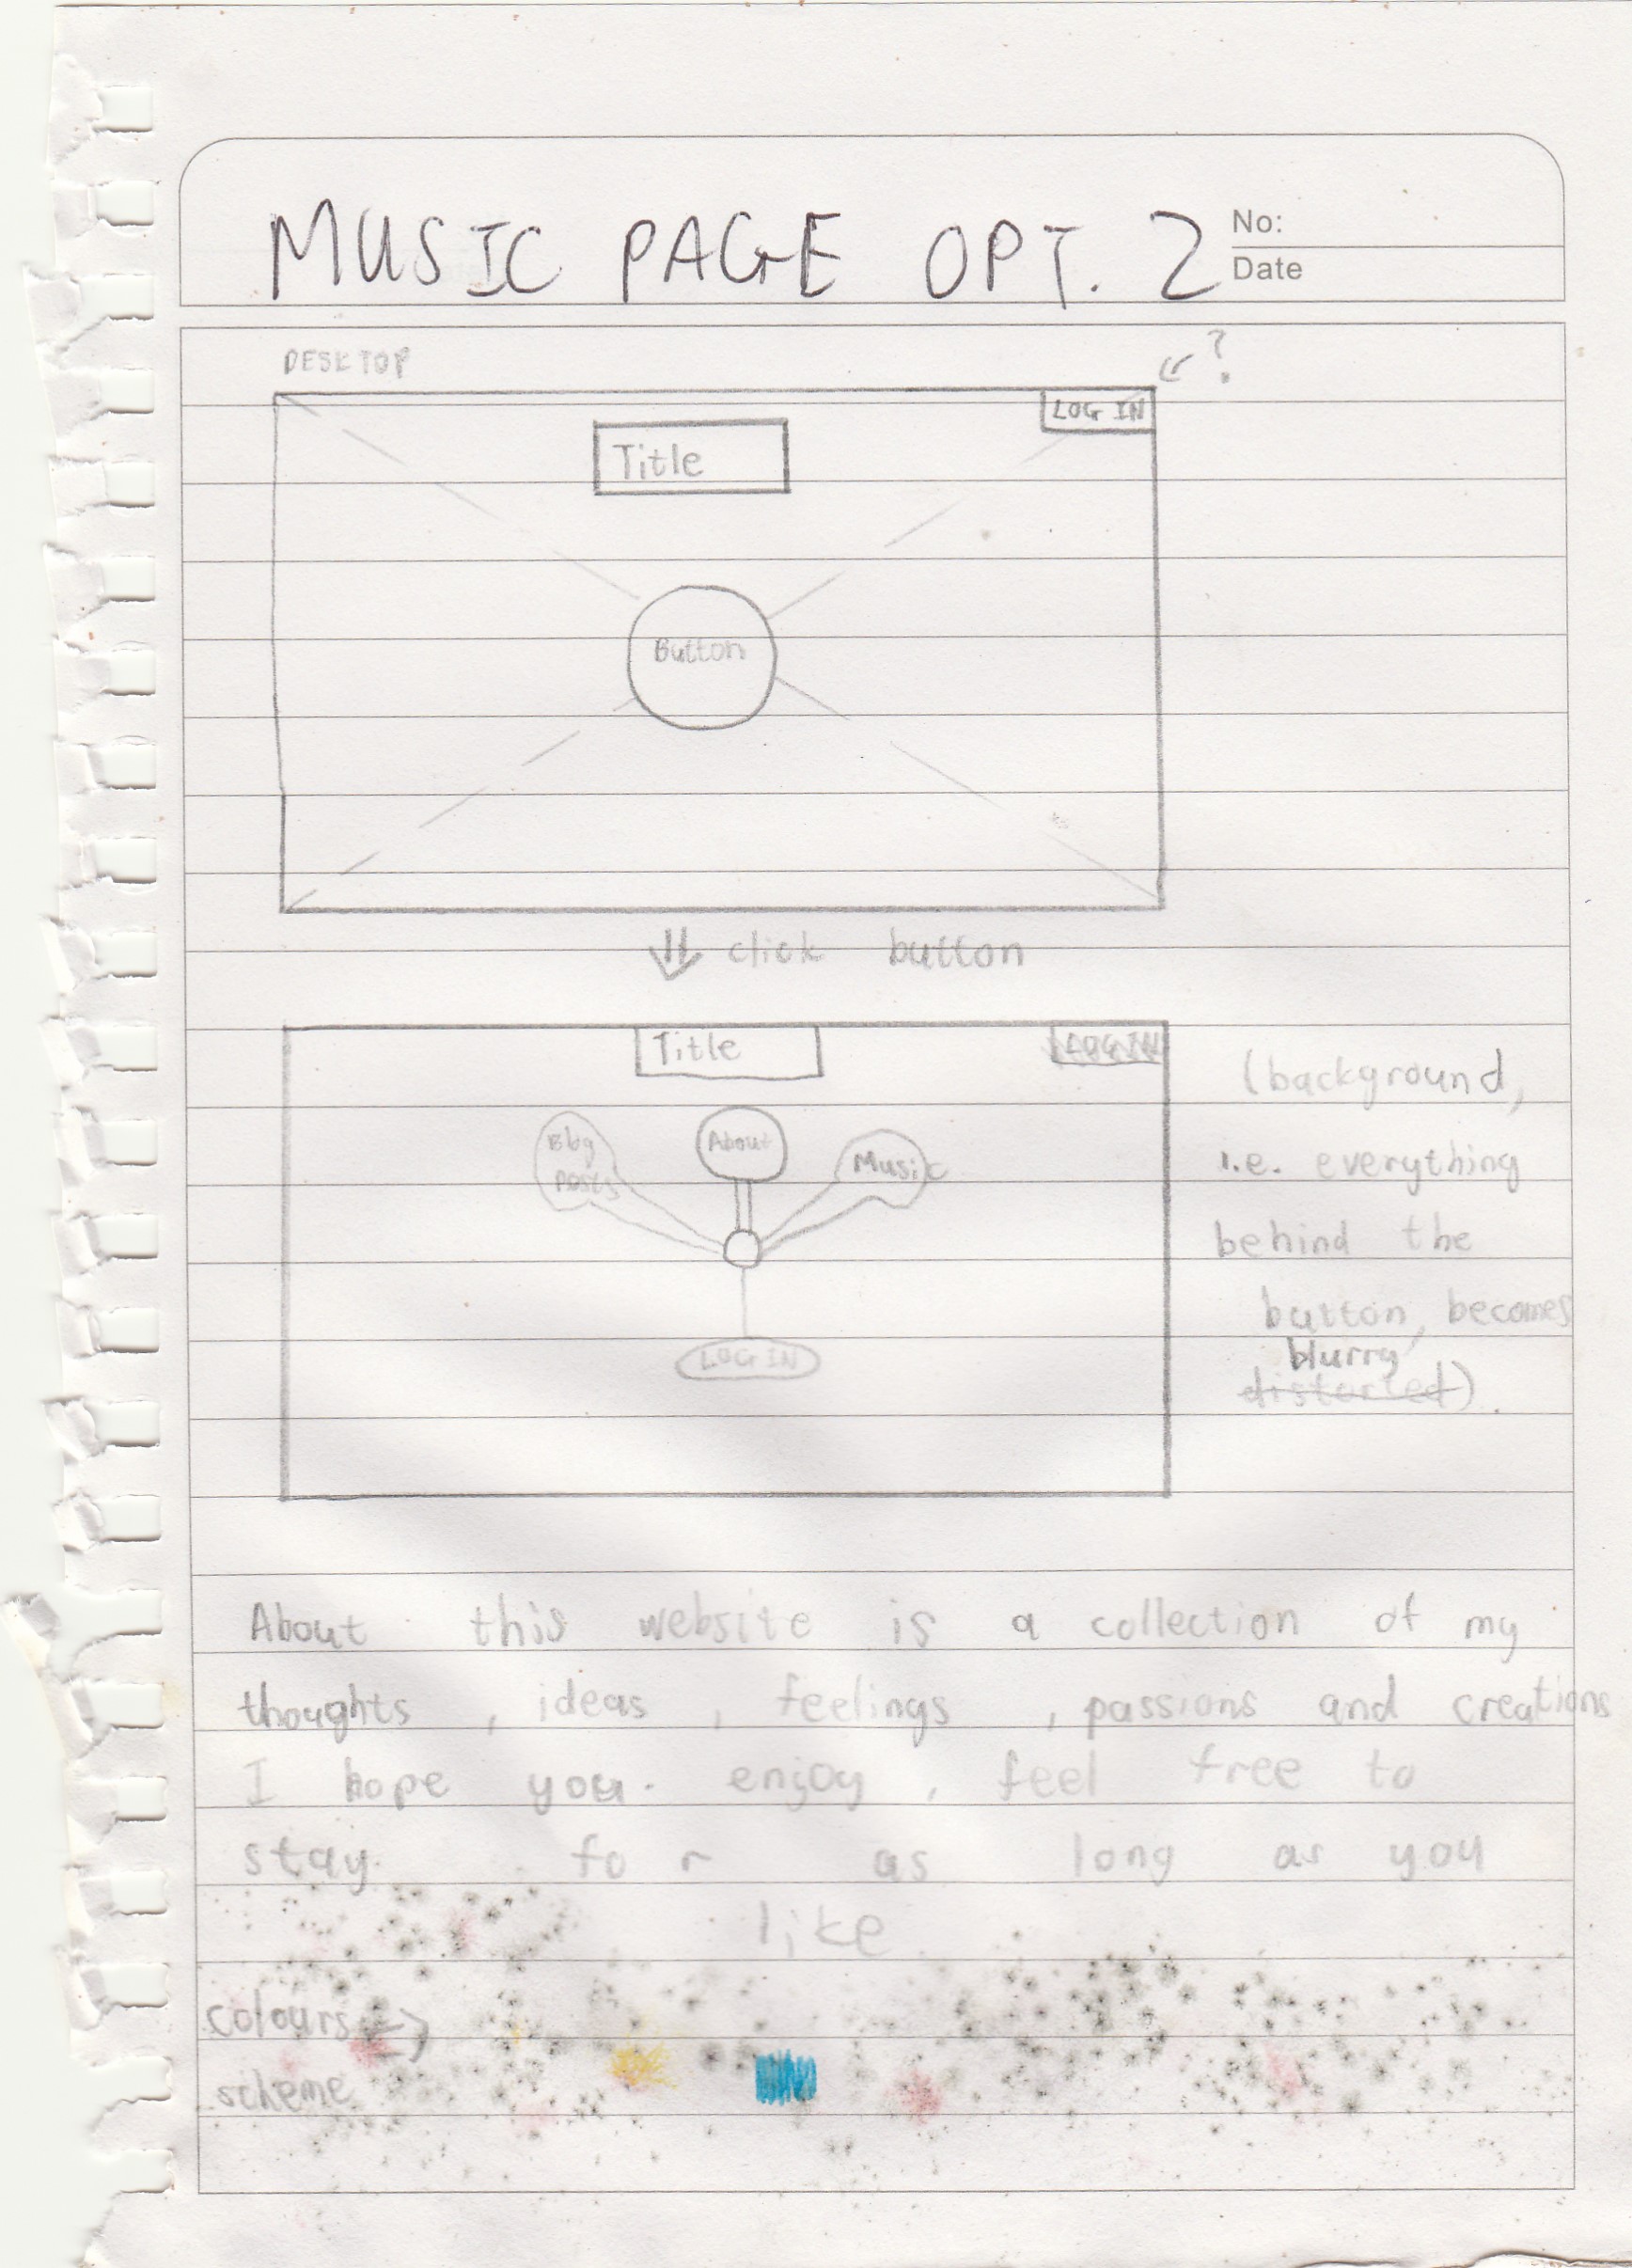 MUSIC PAGE OPT. 2
No:
Date
DESKTOP
?
LOG IN
Title
Button
click button
Title
LOG IN
Blog
posts
About
Music
LOG IN
(background,
i.e. everything
behind the
button, becomes
blurry
distorted)
About this website is a collection of my
thoughts, ideas, feelings, passions and creations
I hope you. enjoy, feel free to
stay. for as long as you
like
colours
scheme